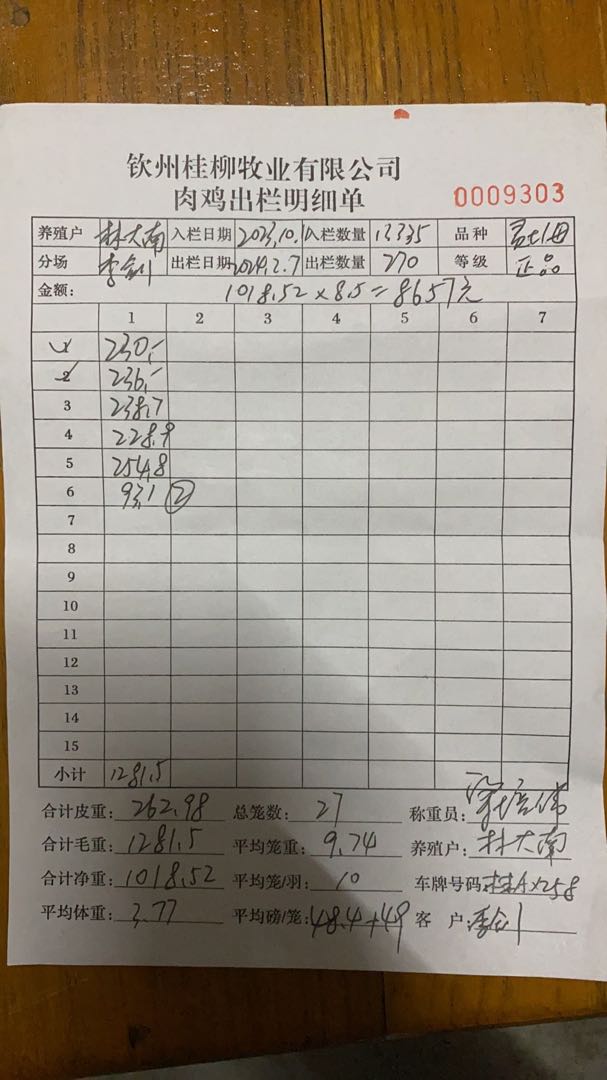 钦州桂柳牧业有限公司
肉鸡出栏明细单 0009303
养殖户 林大南 入栏日期 2023.10.1 入栏数量 13335 品种
分场 李剑 出栏日期 2024.2.7 出栏数量 270 等级 正品
金额: 1018.52×8.5=8657元
1 2 3 4 5 6 7
1 230.-
2 236.-
3 238.7
4 228.9
5 254.8
6 93.1 ②
7
8
9
10
11
12
13
14
15
小计 1281.5
合计皮重: 262.98 总笼数: 27 称重员:
合计毛重: 1281.5 平均笼重: 9.74 养殖户: 林大南
合计净重: 1018.52 平均笼/羽: 10 车牌号码: AX258
平均体重: 3.77 平均磅/笼: 48.4+49 客 户: 李剑